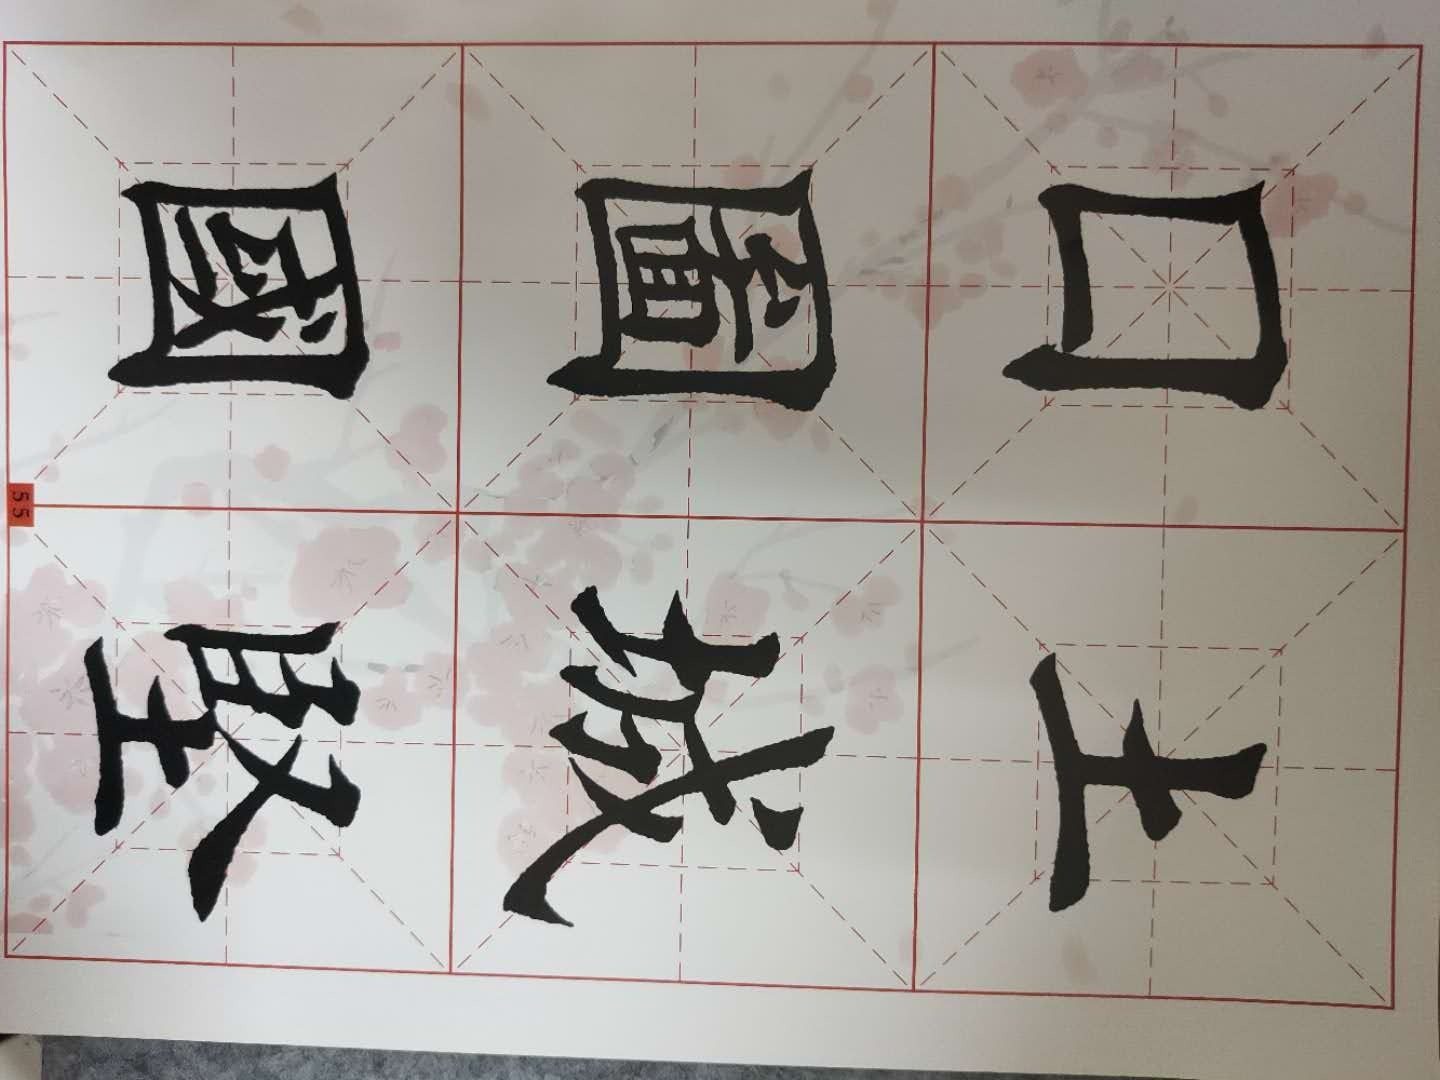 囗 土
圖 城
國 堅
55